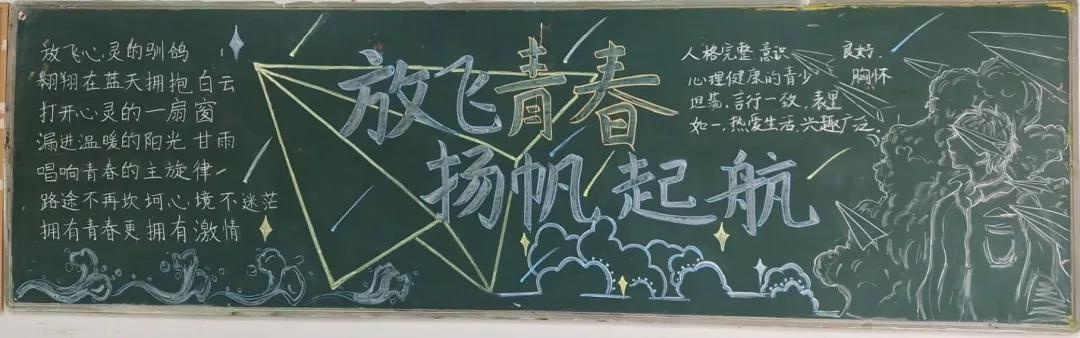 放飞心灵的驯鸽
翱翔在蓝天拥抱白云
打开心灵的一扇窗
漏进温暖的阳光 甘雨
唱响青春的主旋律
路途不再坎坷心境不迷茫
拥有青春更拥有激情
放飞青春
扬帆起航
人格完整 意识 良好.
心理健康的青少 胸怀
坦荡,言行一致,表里
如一,热爱生活,兴趣广泛.